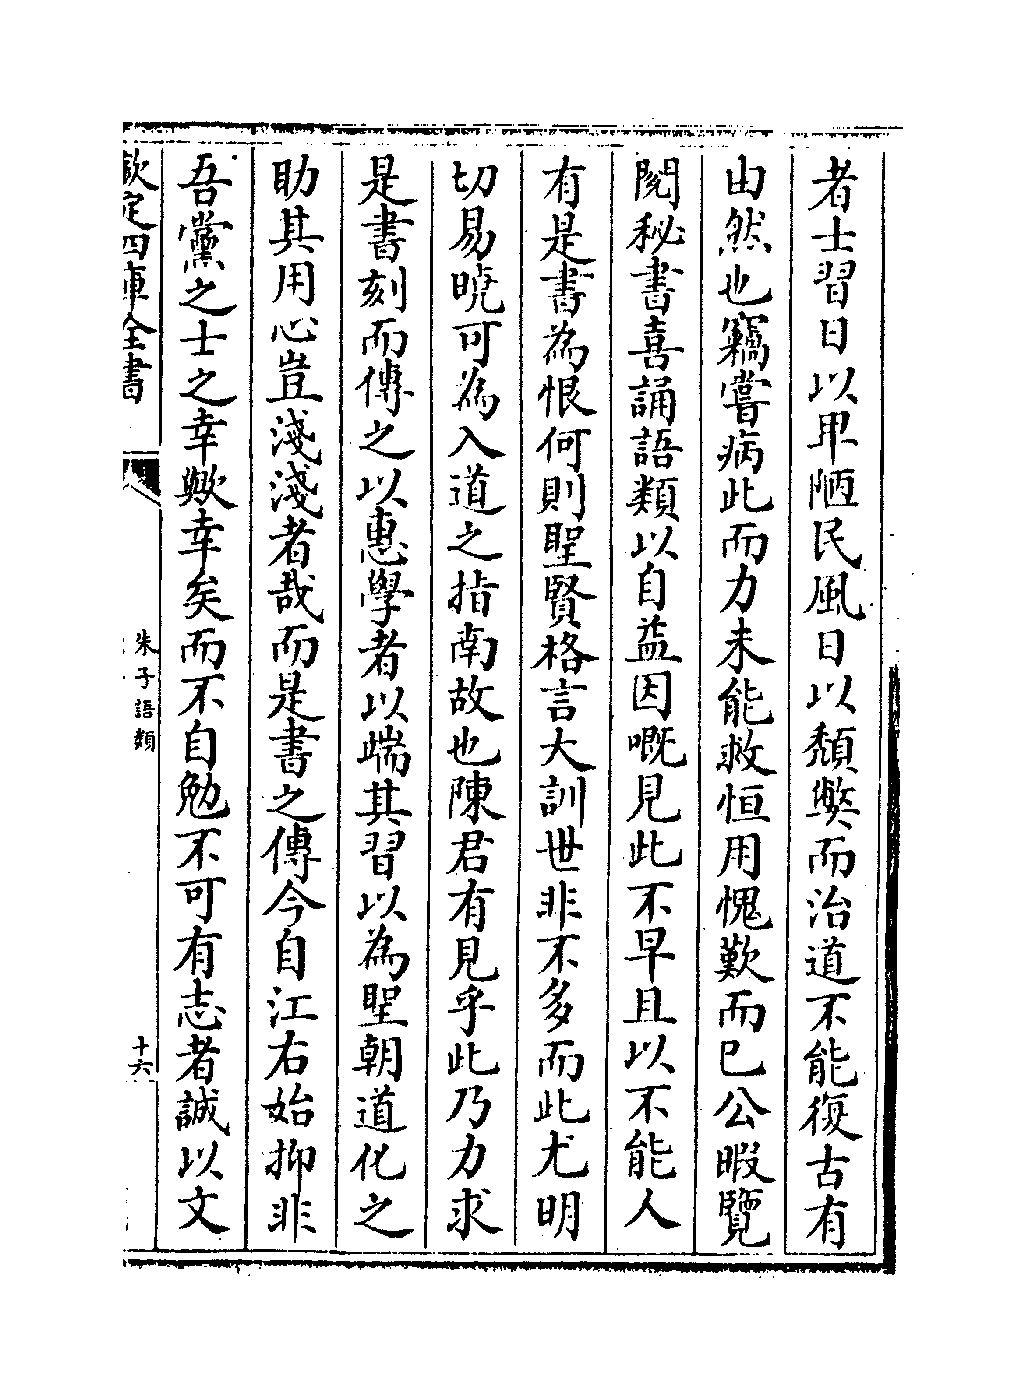 者士習日以卑陋民風日以頽弊而治道不能復古有
由然也竊嘗病此而力未能救恒用愧歎而已公暇覽
閱秘書喜誦語類以自益因嘅見此不早且以不能人
有是書為恨何則聖賢格言大訓世非不多而此尤明
切易曉可為入道之指南故也陳君有見乎此乃力求
是書刻而傳之以惠學者以端其習以為聖朝道化之
助其用心豈淺淺者哉而是書之傳今自江右始抑非
吾黨之士之幸歟幸矣而不自勉不可有志者誠以文
欽定四庫全書
朱子語類
十六